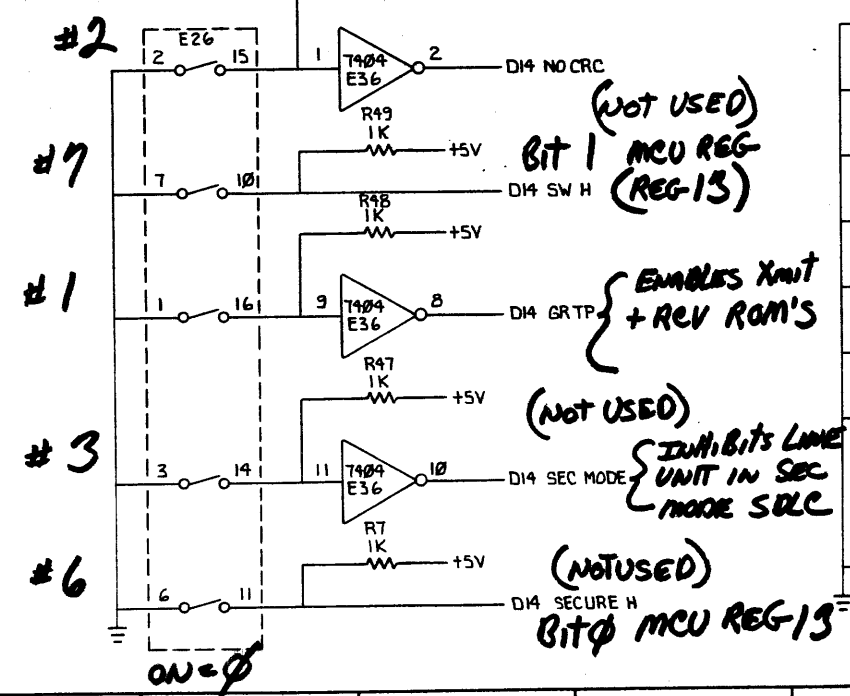 #2
E26
2 15 1 7404 E36 2 D14 NO CRC
(NOT USED)
R49
1K
+5V
Bit 1 MCU REG
(REG-13)
#7
7 10 D14 SW H
R48
1K
+5V
#1
1 16 9 7404 E36 8 D14 GRTP
ENABLES Xmit
+ RCV ROM'S
R47
1K
+5V
(NOT USED)
#3
3 14 11 7404 E36 10 D14 SEC MODE
INHIBITS LINE
UNIT IN SEC
MODE SDLC
R7
1K
+5V
(NOT USED)
#6
6 11 D14 SECURE H
BitØ MCU REG-13
ON=Ø